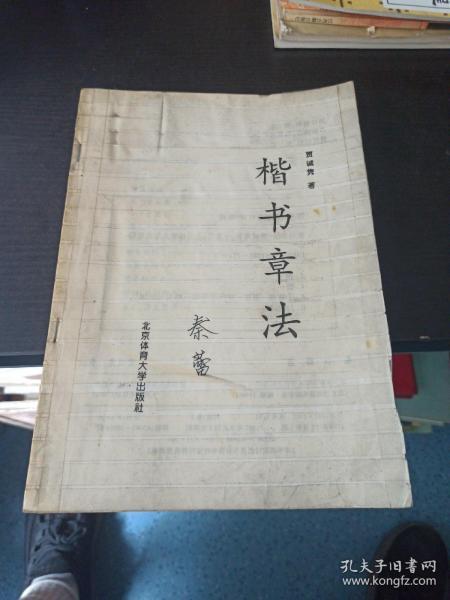 贾诚隽 著
楷书章法
秦蕾
北京体育大学出版社
孔夫子旧书网
www.kongfz.com